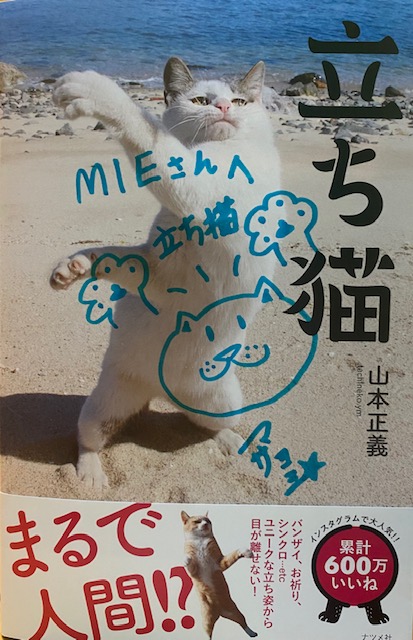 立ち猫
山本正義
tachineko.ym
MIEさんへ
立ち猫
マサヨシ
まるで
人間!?
バンザイ、お祈り、
シンクロ…etc
ユニークな立ち姿から
目が離せない!
インスタグラムで大人気!!
累計
600万
いいね
ナツメ社